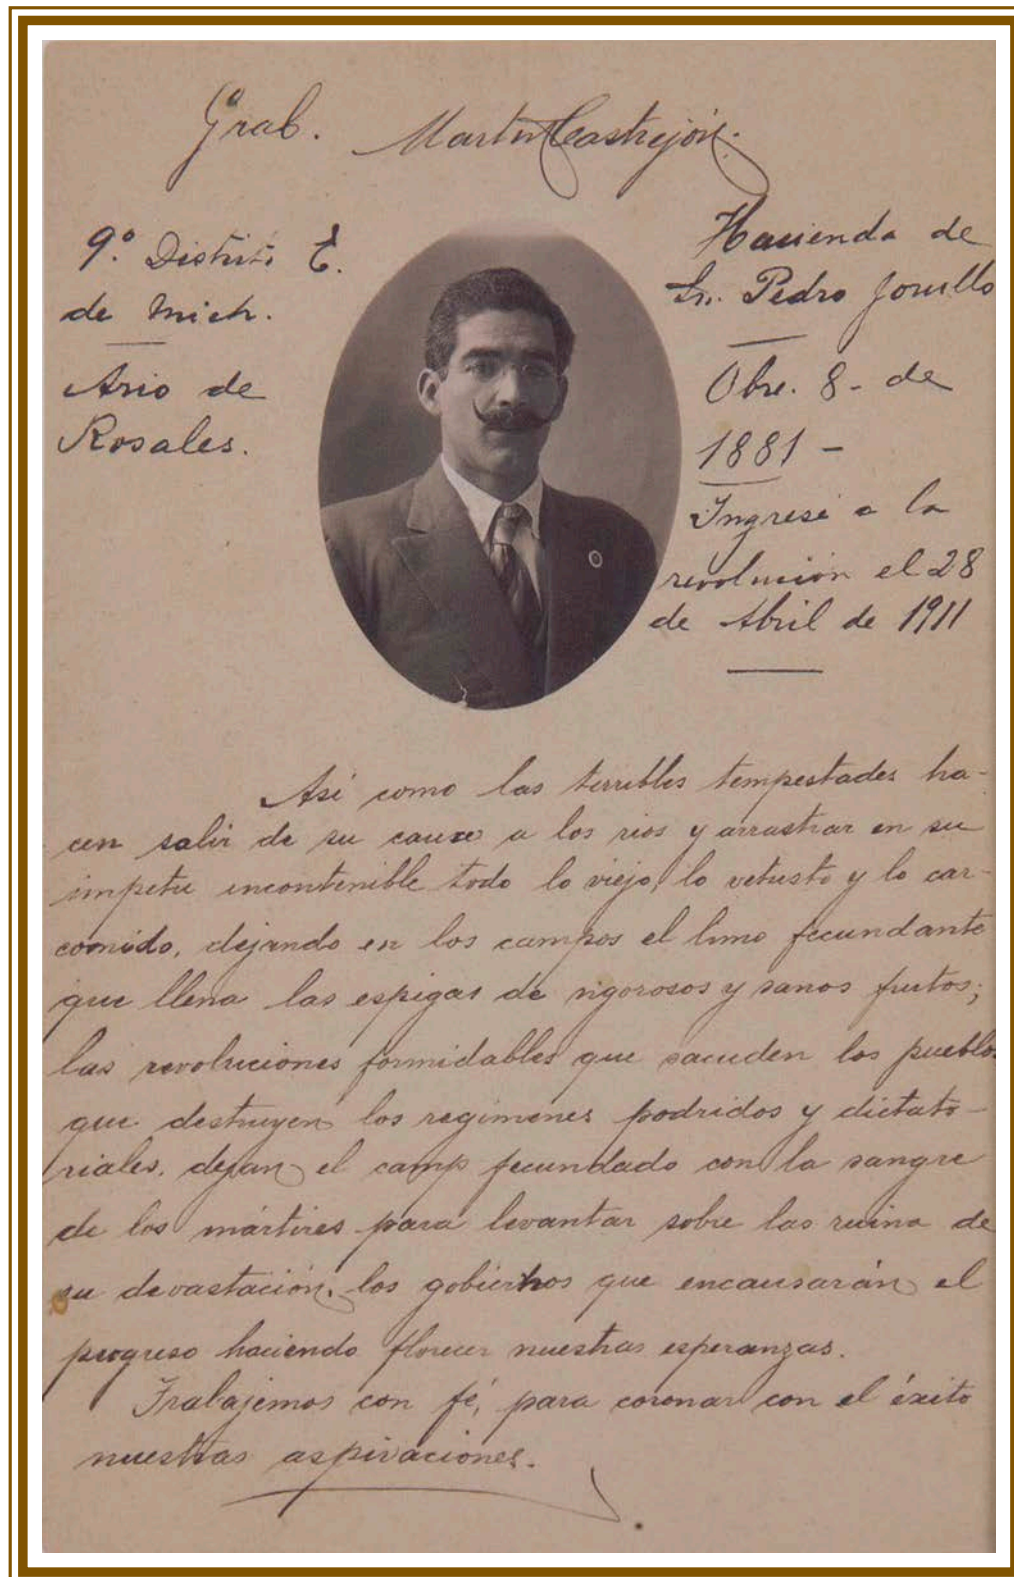 Gral. Martin Castrejón.
9º Distrito E.
de Mich.
Ario de
Rosales.
Hacienda de
Sn. Pedro Jorullo
Obre. 8 - de
1881 -
Ingresé a la
revolución el 28
de Abril de 1911
Así como las terribles tempestades ha-
cen salir de su cauce a los rios y arrastrar en su
impetu incontenible todo lo viejo, lo vetusto y lo car-
comido, dejando en los campos el limo fecundante
que llena las espigas de vigorosos y sanos frutos;
las revoluciones formidables que sacuden los pueblos
que destruyen los regimenes podridos y dictato-
riales, dejan el campo fecundado con la sangre
de los mártires para levantar sobre las ruina de
su devastación, los gobiernos que encausarán el
progreso haciendo florecer nuestras esperanzas.
Trabajemos con fé, para coronar con el éxito
nuestras aspiraciones.